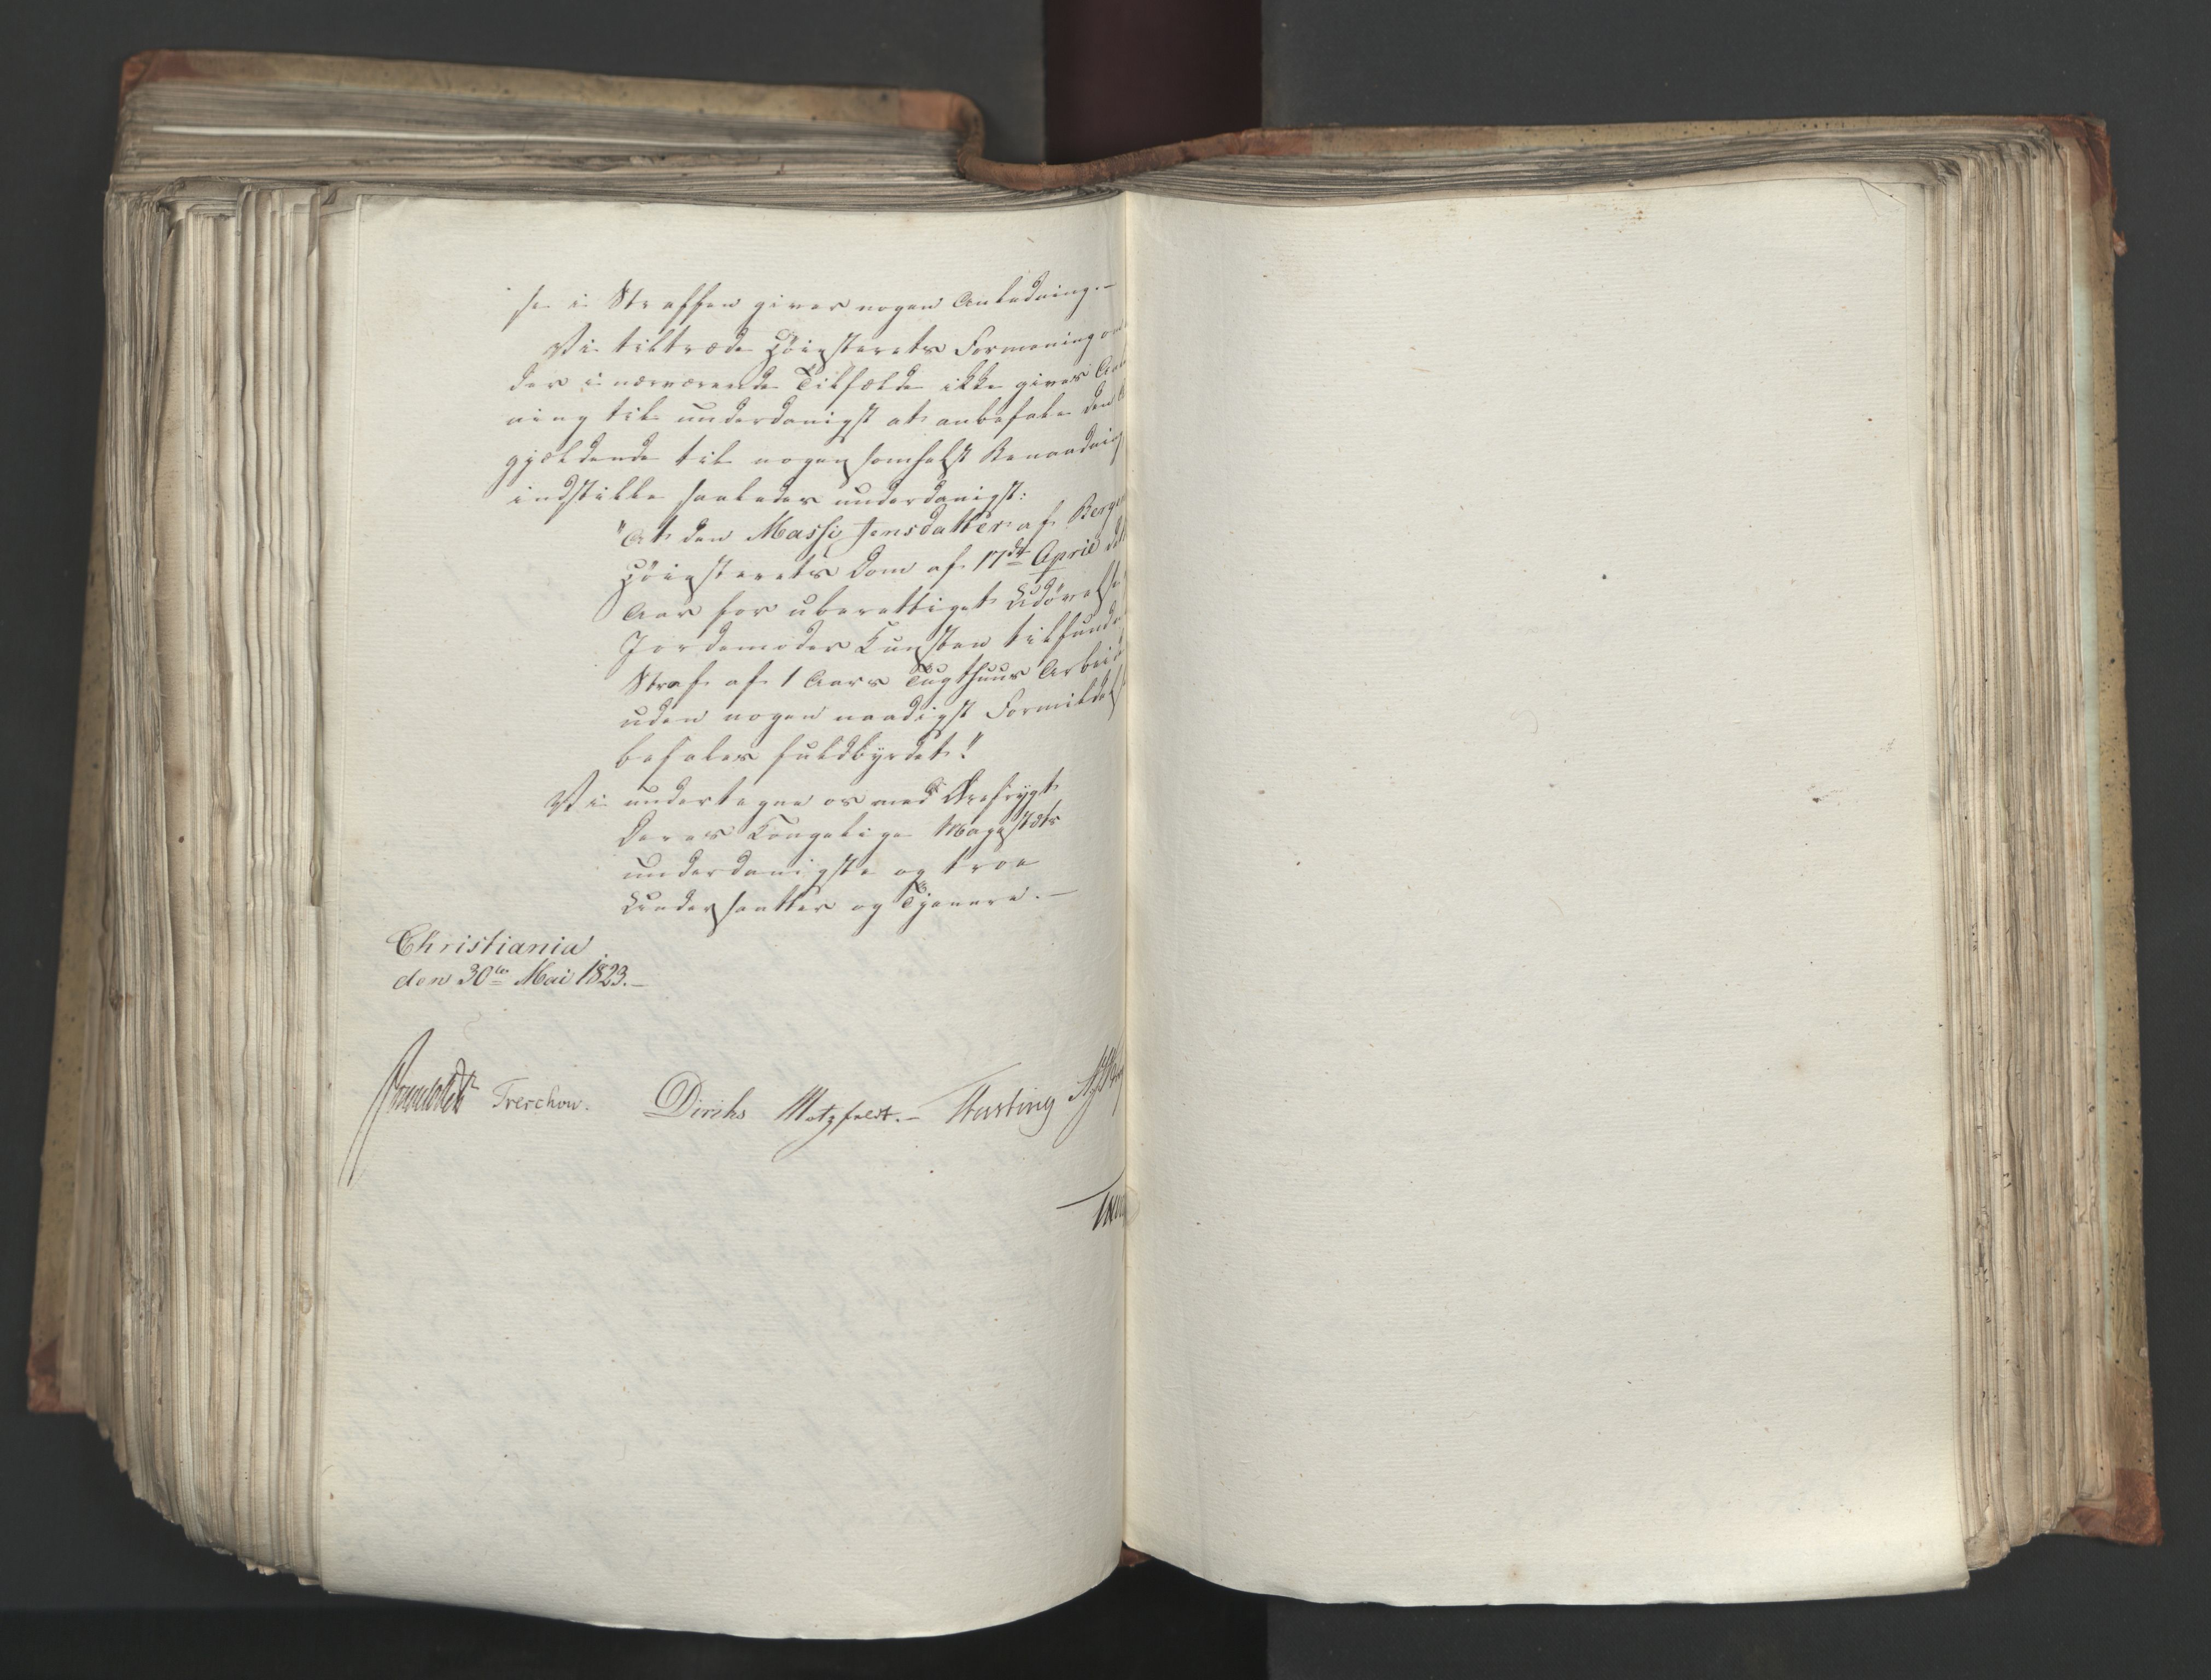 se i Straffen giver nogen Anledning.—
Vi tiltræde Høiesterets Formening om
der i nærværende Tilfælde ikke gives An
ning til underdanigst at anbefale den
gjældende til nogensomhelst Benaadning
indstille saaledes underdanigst:
"At den Massi Jensdatter af Bergen
Høiesterets Dom af 17de April d
Aar for uberettiget Udøvelse
Jordemoder Kunsten tilfundne
Straf af 1 Aars Tugthuus Arbeid
uden nogen naadigst Formildelse
befales fuldbyrdet!"
Vi undertegne os med Ærefrygt
Deres Kongelige Majestæts
underdanigste og troe
Undersaatter og Tjenere.—
Christiania
den 30te Mai 1823.—
Treschow. Diriks Motzfeldt.— Fasting